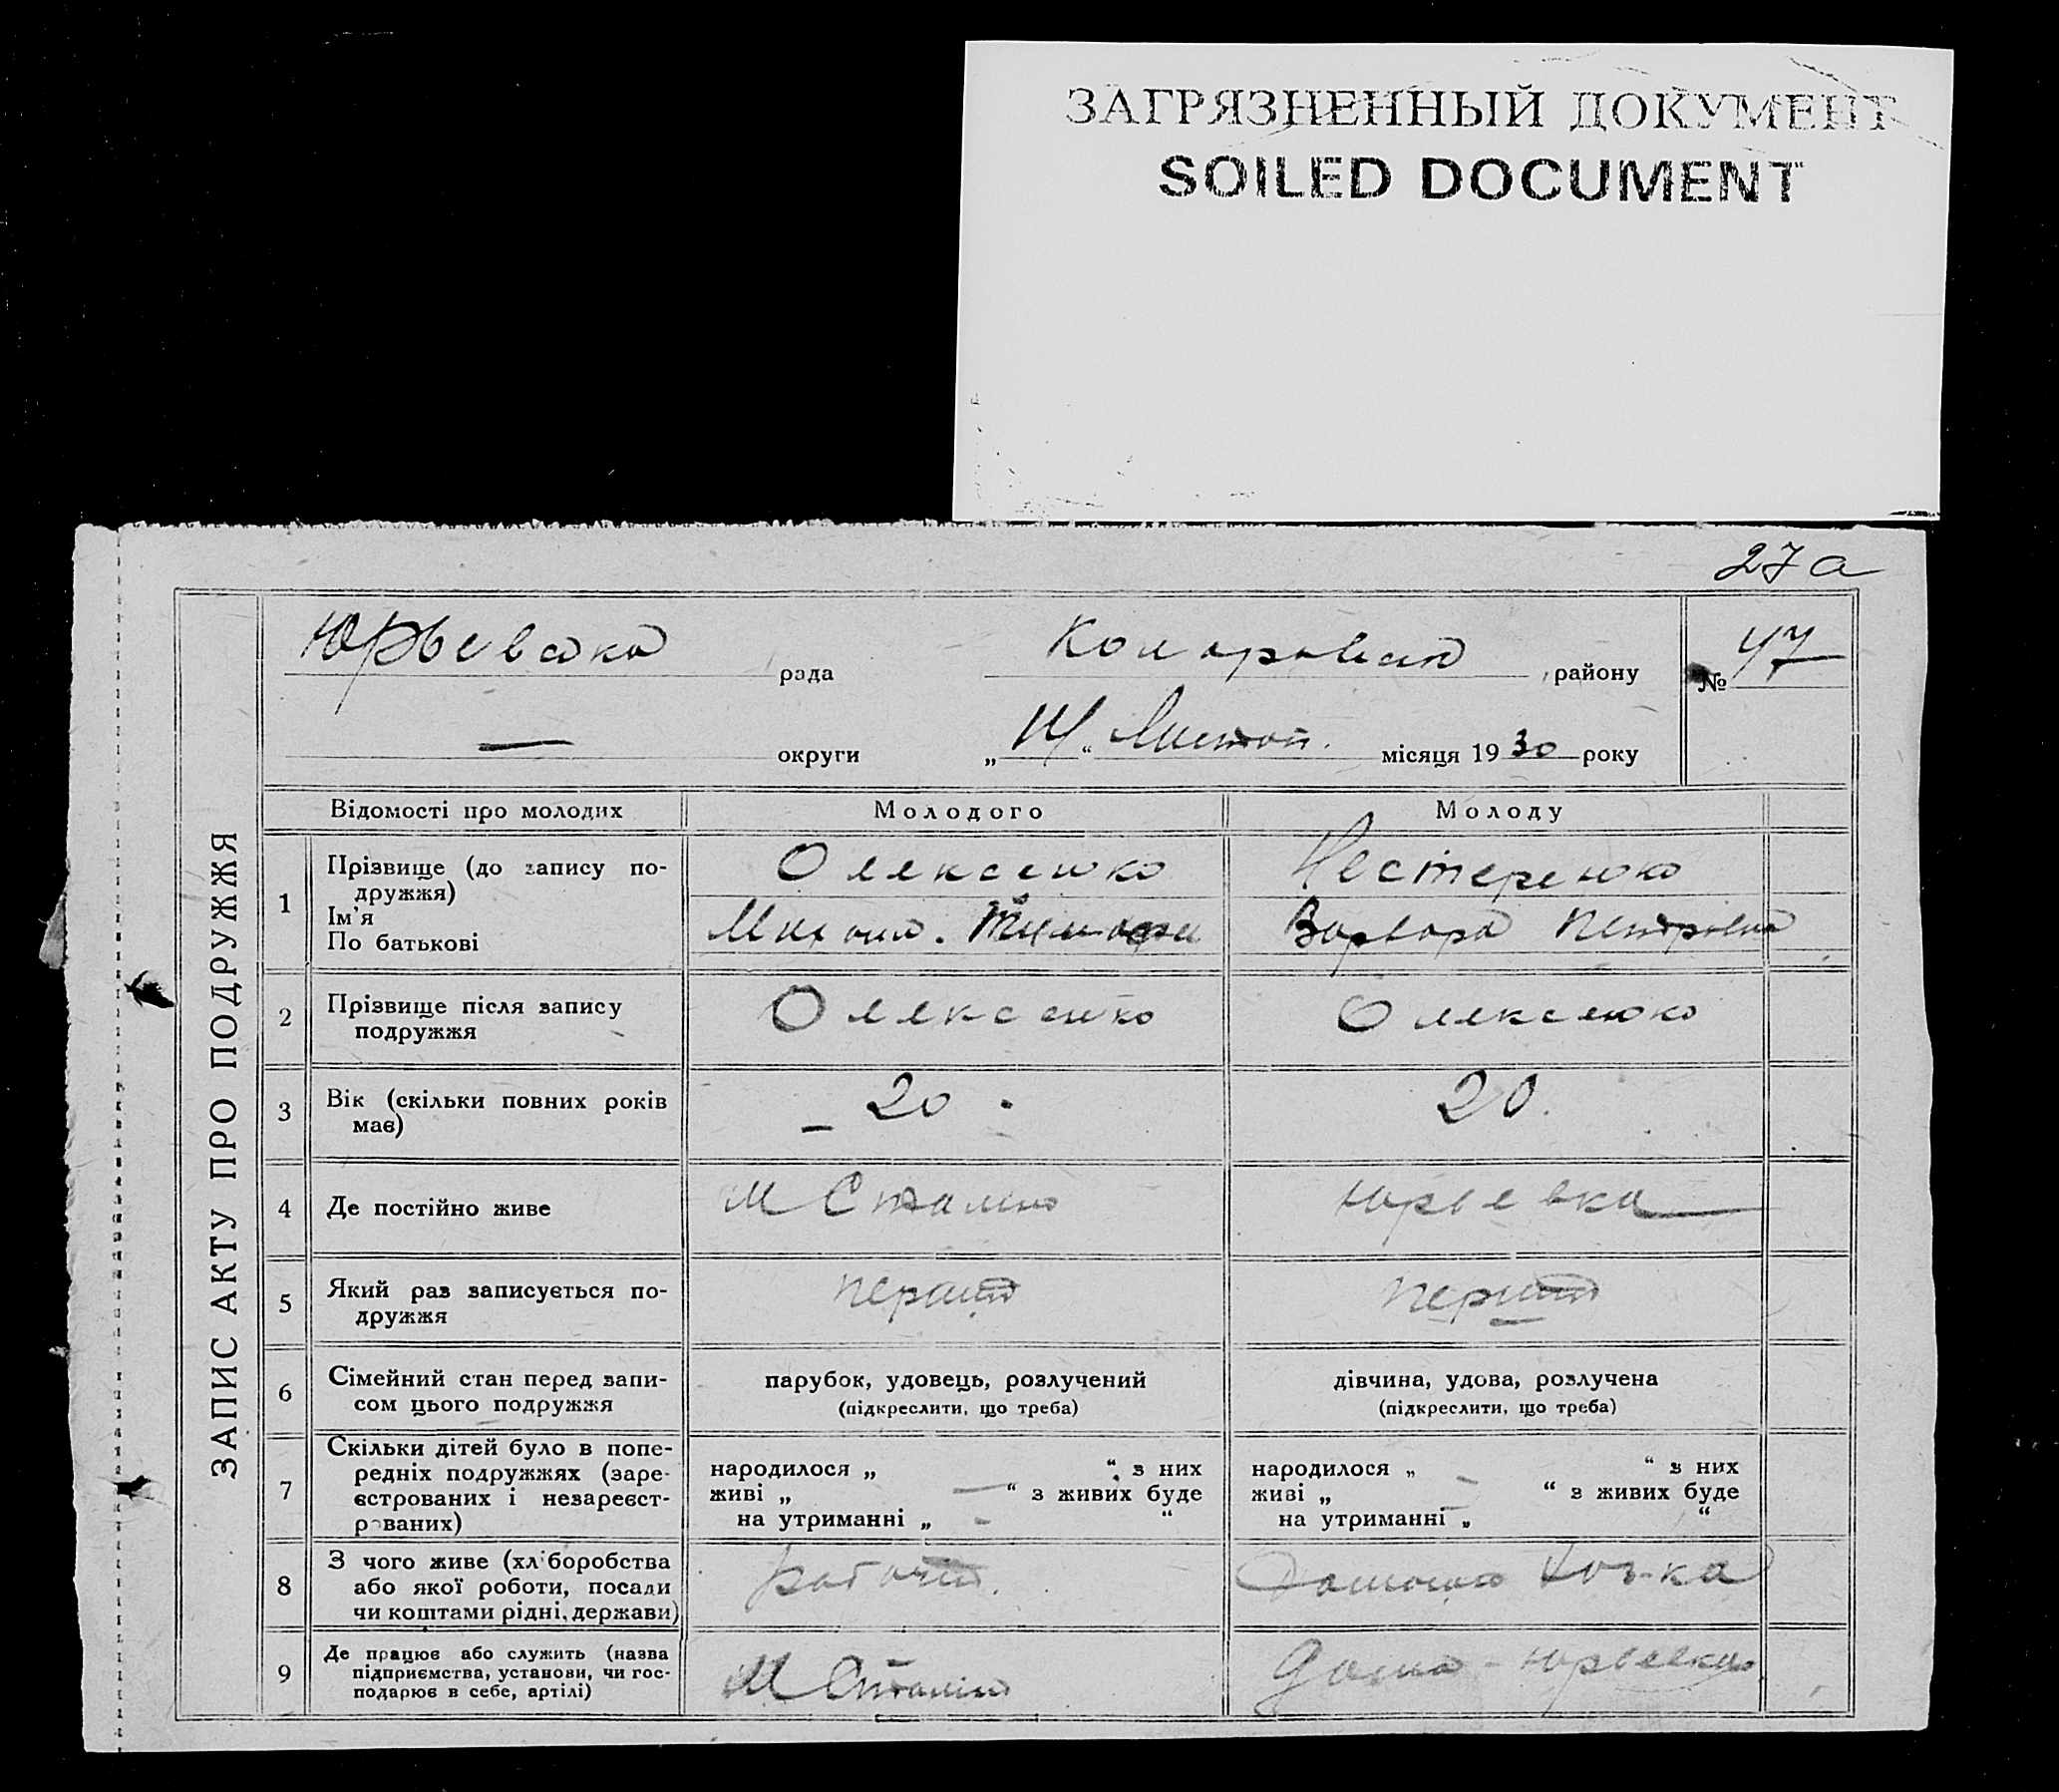 ЗАГРЯЗНЕННЫЙ ДОКУМЕНТ
SOILED DOCUMENT
27а
ЗАПИС АКТУ ПРО ПОДРУЖЖЯ
Юрьевска рада
району
№ 47
— округи
„ “ Листоп. місяця 1930 року
Відомості про молодих Молодого Молоду
1 Прізвище (до запису по-
дружжя)
Ім'я
По батькові
Олексенко Нестеренко
Михаил. Варвара Петровна
2 Прізвище після запису
подружжя
Олексенко Олексенко
3 Вік (скільки повних років
має)
20. 20.
4 Де постійно живе М Сталино Юрьевка
5 Який раз записується по-
дружжя
перший перший
6 Сімейний стан перед запи-
сом цього подружжя
парубок, удовець, розлучений
(підкреслити, що треба)
дівчина, удова, розлучена
(підкреслити, що треба)
7 Скільки дітей було в попе-
редніх подружжях (заре-
єстрованих і незареєст-
рованих)
народилося „ “ з них
живі „ — “ з живих буде
на утриманні „ - “
народилося „ “ з них
живі „ “ з живих буде
на утриманні „ “
8 З чого живе (хліборобства
або якої роботи, посади
чи коштами рідні, держави)
рабочий.
9 Де працює або служить (назва
підприємства, установи, чи гос-
подарює в себе, артілі)
М Сталіно
дома - Юрьевка